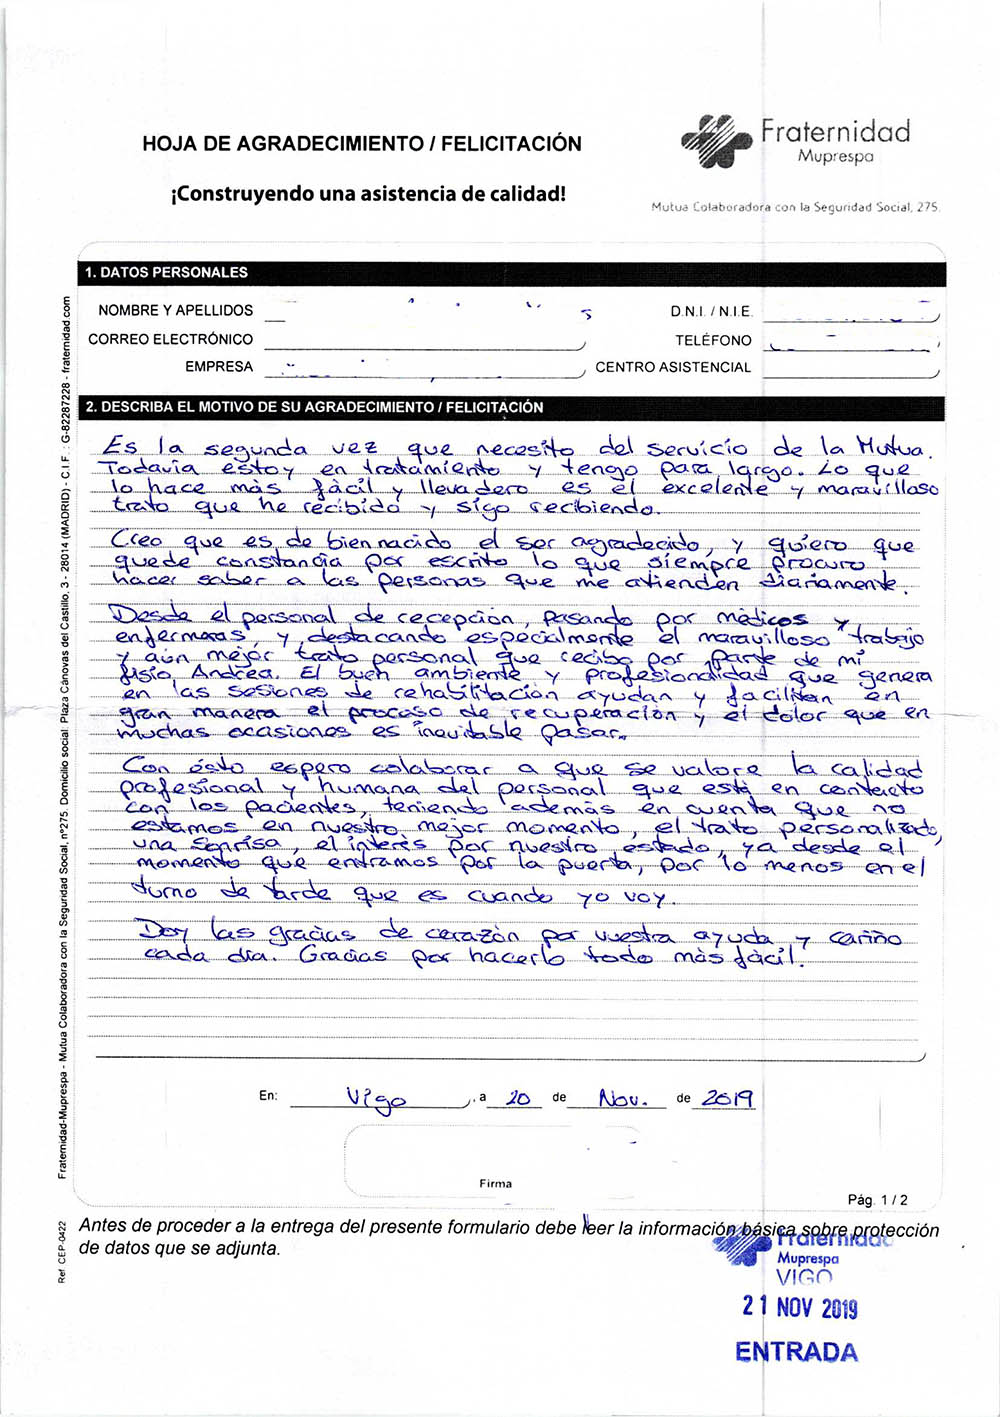 HOJA DE AGRADECIMIENTO / FELICITACIÓN
¡Construyendo una asistencia de calidad!
Fraternidad
Muprespa
Mutua Colaboradora con la Seguridad Social, 275.
1. DATOS PERSONALES
NOMBRE Y APELLIDOS
D.N.I. / N.I.E.
CORREO ELECTRÓNICO
TELÉFONO
EMPRESA
CENTRO ASISTENCIAL
2. DESCRIBA EL MOTIVO DE SU AGRADECIMIENTO / FELICITACIÓN
Es la segunda vez que necesito del servicio de la Mutua.
Todavía estoy en tratamiento y tengo para largo. Lo que
lo hace más fácil y llevadero es el excelente y maravilloso
trato que he recibido y sigo recibiendo.
Creo que es de bien nacido el ser agradecido, y quiero que
quede constancia por escrito lo que siempre procuro
hacer saber a las personas que me atienden diariamente.
Desde el personal de recepción, pasando por médicos y
enfermeras, y destacando especialmente el maravilloso trabajo
y aún mejor trato personal que recibo por parte de mi
fisio Andrea. El buen ambiente y profesionalidad que genera
en las sesiones de rehabilitación ayudan y facilitan en
gran manera el proceso de recuperación y el dolor que en
muchas ocasiones es inevitable pasar.
Con ésto espero colaborar a que se valore la calidad
profesional y humana del personal que está en contacto
con los pacientes, teniendo además en cuenta que no
estamos en nuestro mejor momento, el trato personalizado,
una sonrisa, el interés por nuestro estado, ya desde el
momento que entramos por la puerta, por lo menos en el
turno de tarde que es cuando yo voy.
Doy las gracias de corazón por vuestra ayuda y cariño
cada día. Gracias por hacerlo todo más fácil.
En: Vigo, a 20 de Nov. de 2019
Firma
Pág. 1 / 2
Antes de proceder a la entrega del presente formulario debe leer la información básica sobre protección
de datos que se adjunta.
Fraternidad
Muprespa
VIGO
21 NOV 2019
ENTRADA
Fraternidad-Muprespa - Mutua Colaboradora con la Seguridad Social, nº275. Domicilio social: Plaza Cánovas del Castillo, 3 - 28014 (MADRID) - C.I.F.: G-82287228 - fraternidad.com
Ref. CEP-0422